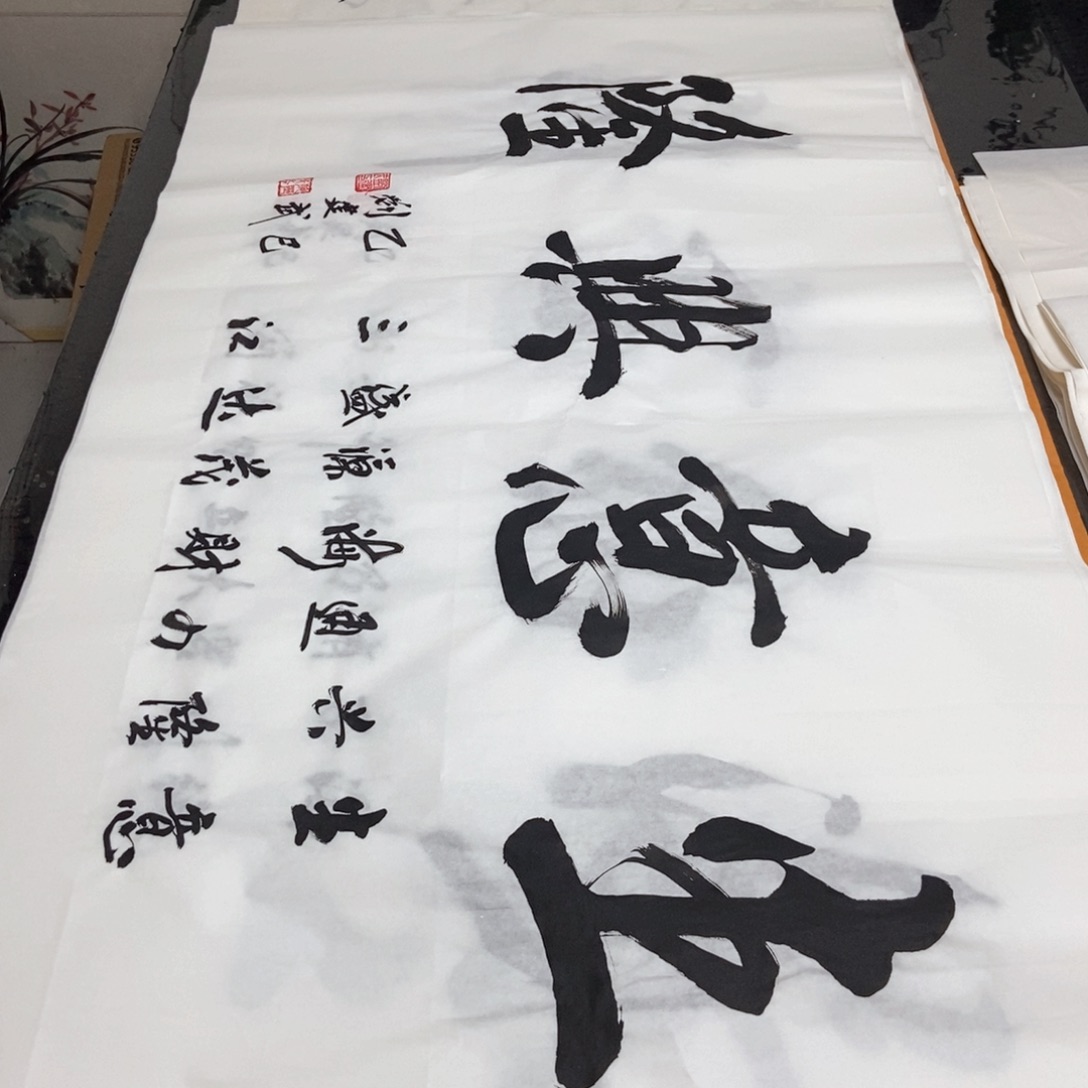 生意興隆
生意
兴隆
通四
海財
源茂
盛达
三江
乙巳
劉建武